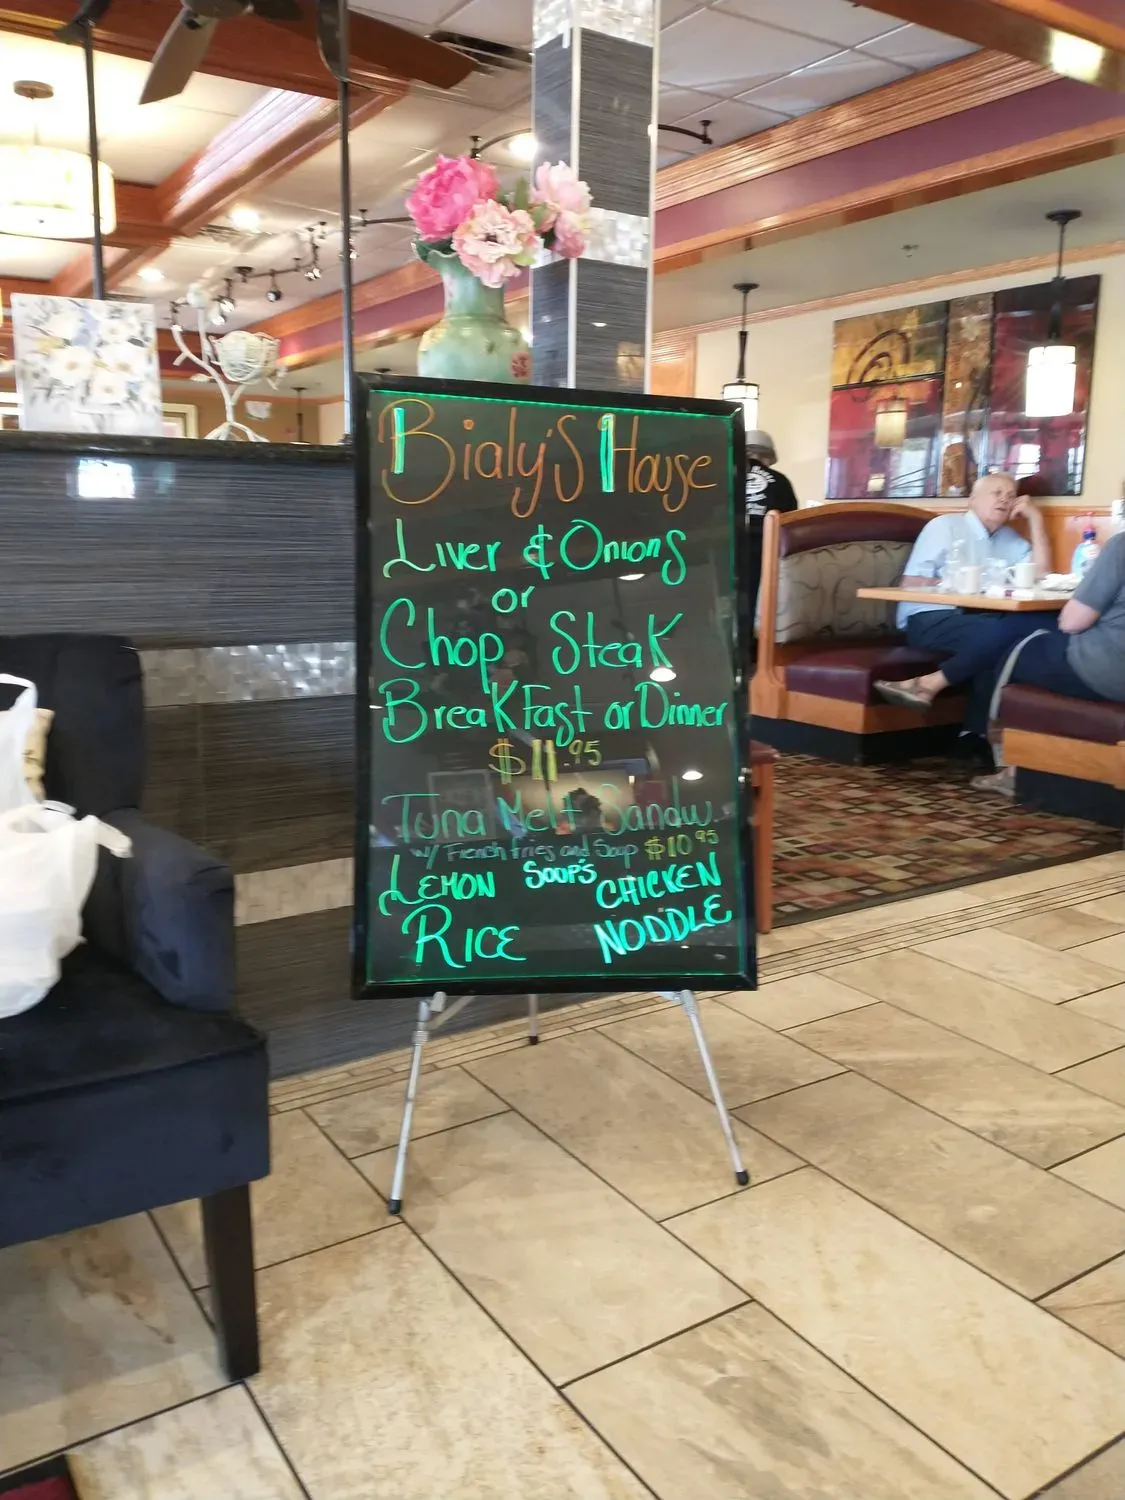 Bialy's House
Liver & Onions
or
Chop Steak
BreakFast or Dinner
$11.95
Tuna Melt Sandw.
w/ French Fries and Soup $10.95
Soop's
Lemon Rice
Chicken Noddle